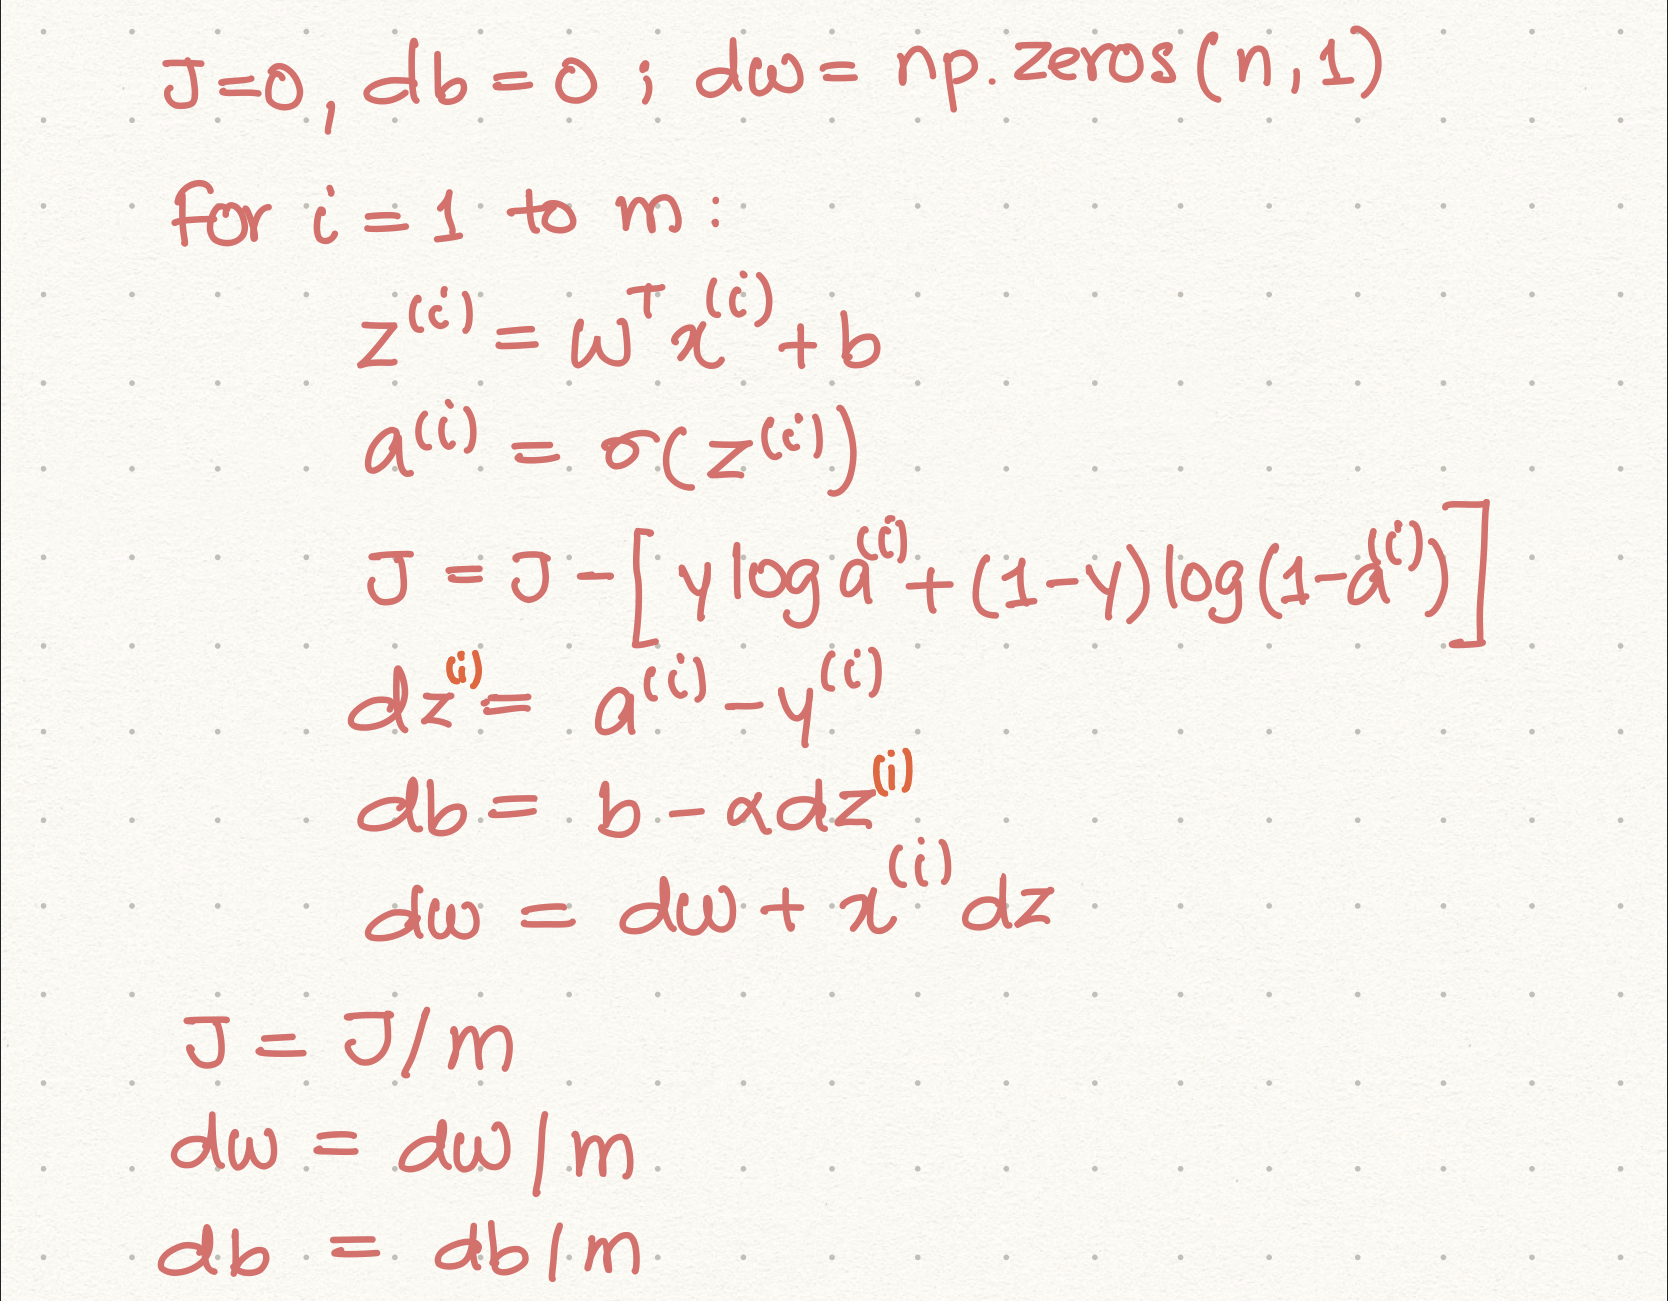 J=0, db = 0 ; dw = np.zeros(n,1)
for i = 1 to m :
z^(i) = w^T x^(i) + b
a^(i) = σ(z^(i))
J = J - [y log a^(i) + (1-y) log(1-a^(i))]
dz^(i) = a^(i) - y^(i)
db = b - αdz^(i)
dw = dw + x^(i) dz
J = J/m
dw = dw/m
db = db/m